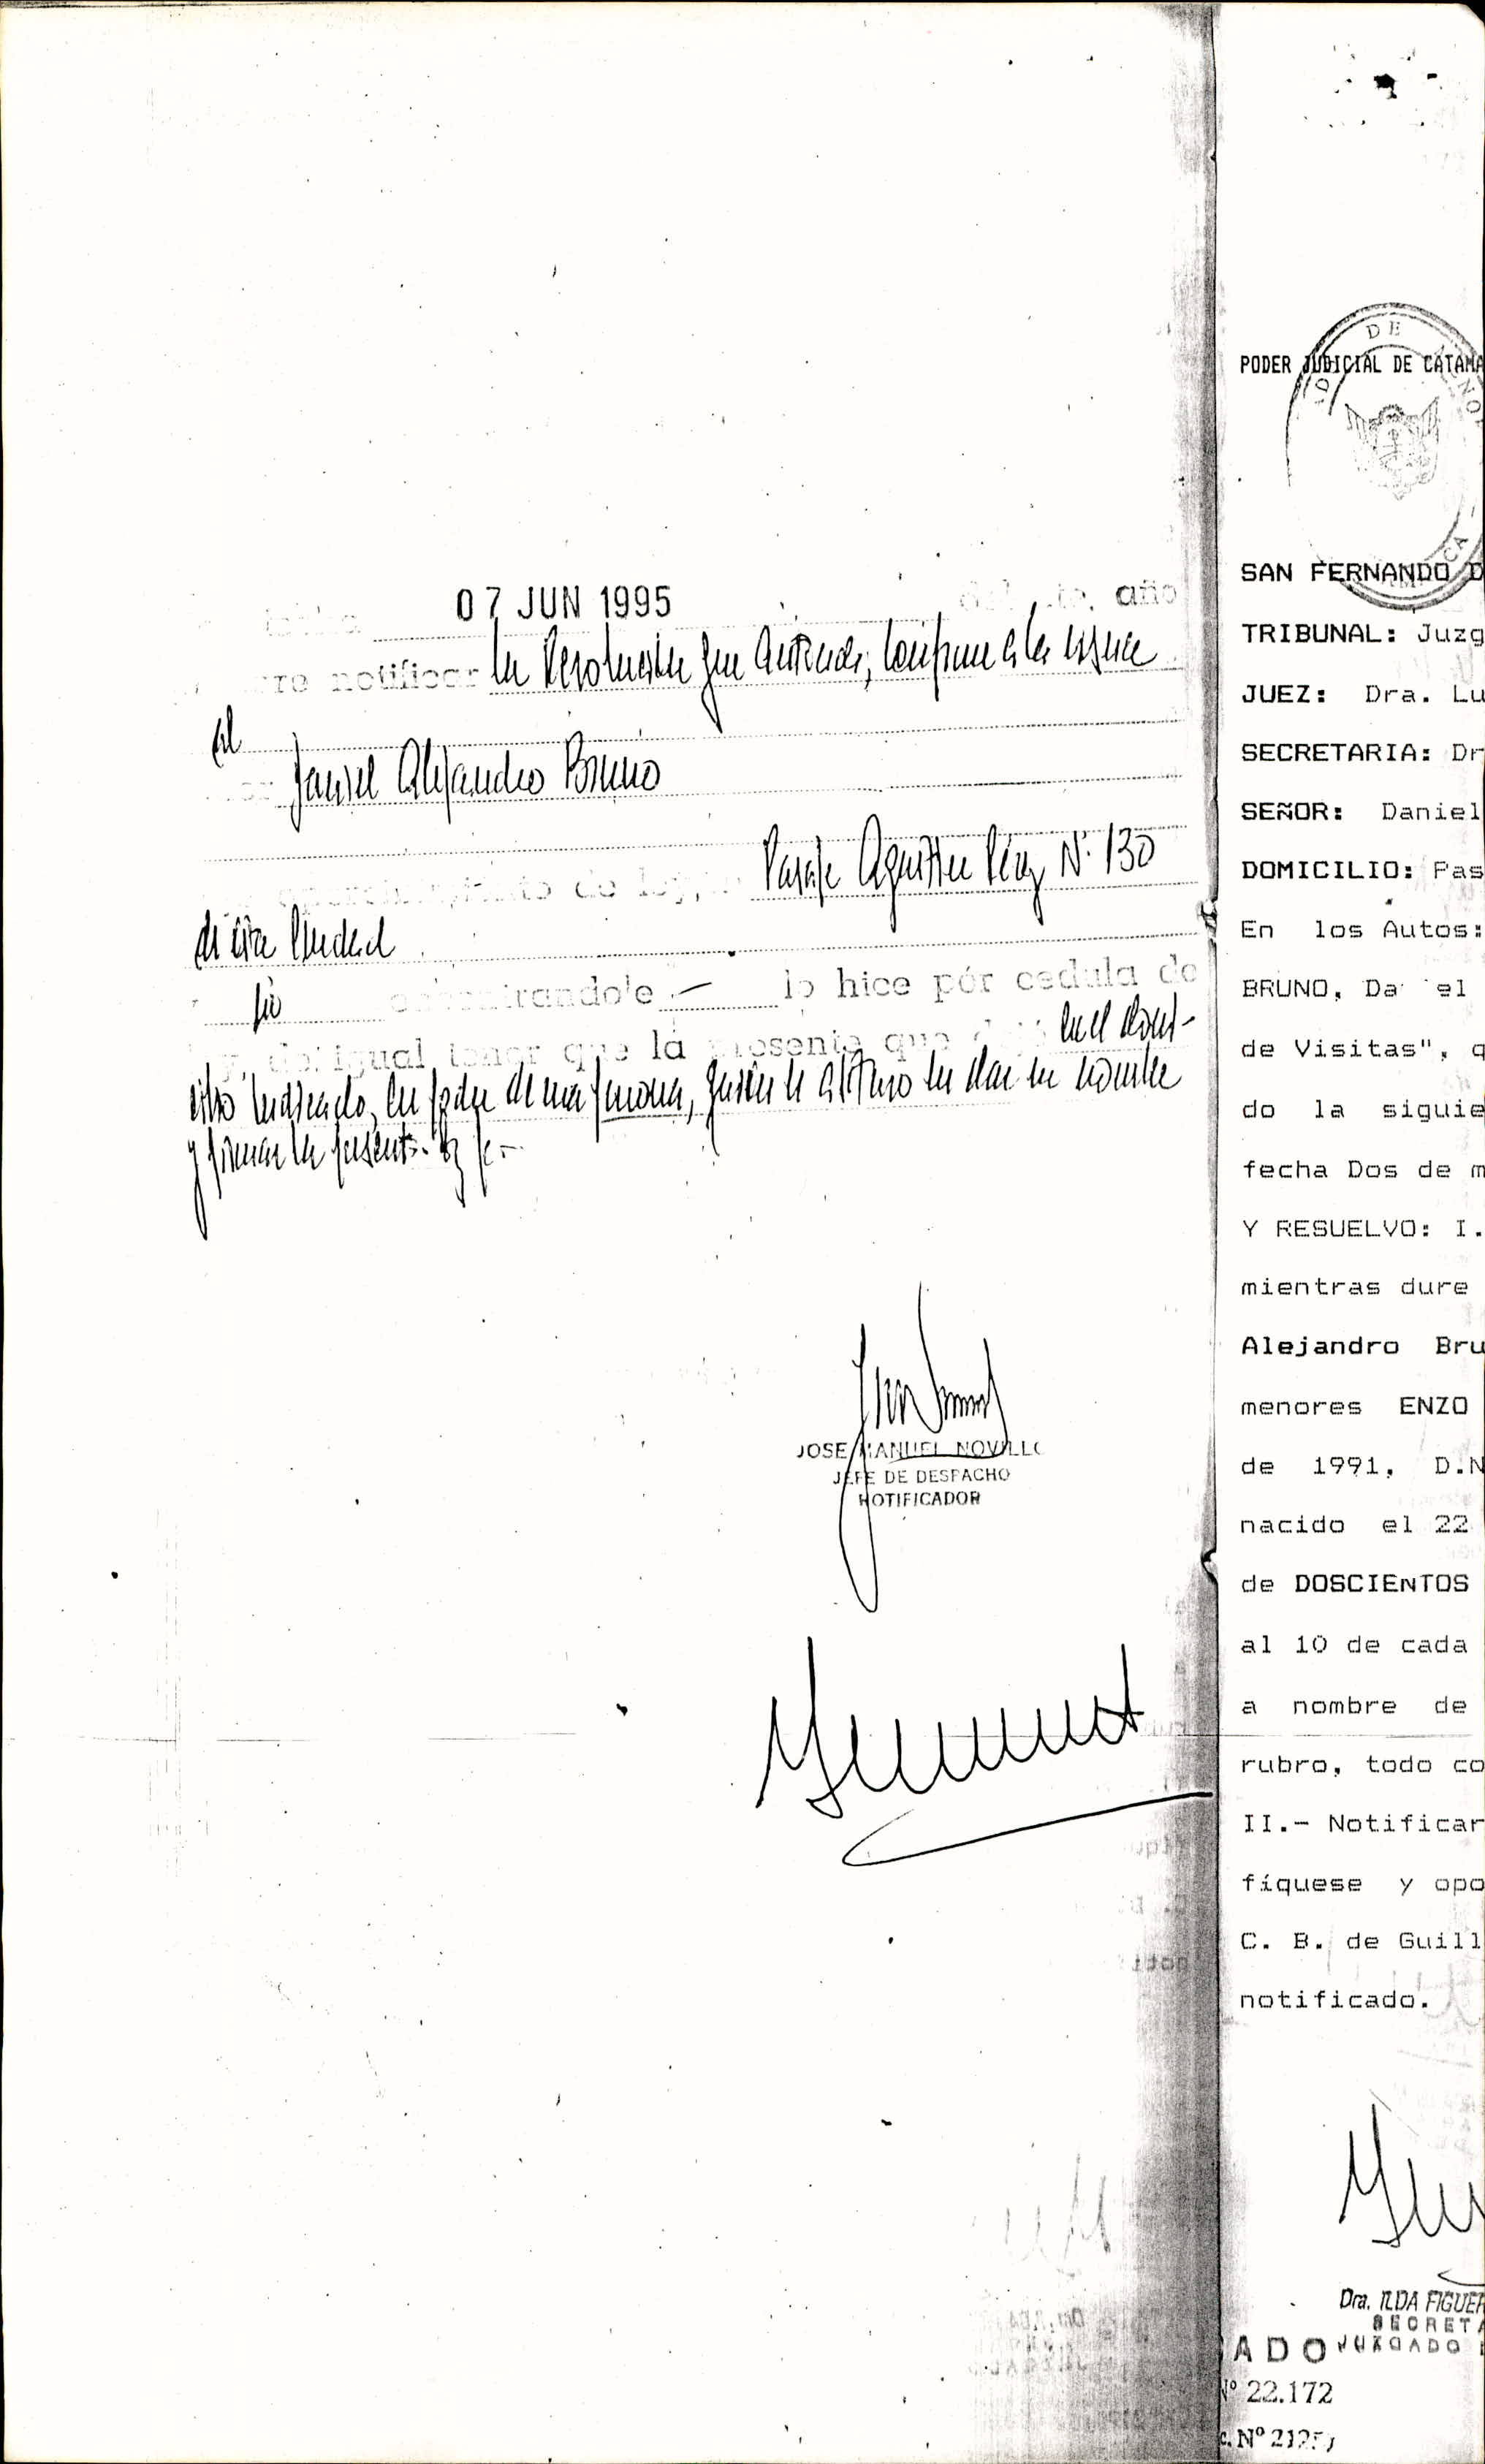 07 JUN 1995 año
notificar la Resolución que antecede, conforme a la
al
Daniel Alejandro Bruno
de ley, Pasaje Agustín N: 130
de esta Ciudad
no lo hice por cedula de
igual tenor que la presente que en el domi-
cilio indicado, en poder de una persona, quien se a dar su nombre
y firmar la presente.
JOSE MANUEL NOVILLO
JEFE DE DESPACHO
NOTIFICADOR
PODER JUDICIAL DE CATAMA
DE
SAN FERNANDO D
TRIBUNAL: Juzg
JUEZ: Dra. Lu
SECRETARIA: Dr
SEÑOR: Daniel
DOMICILIO: Pas
En los Autos:
BRUNO, Da el
de Visitas", q
do la siguie
fecha Dos de m
Y RESUELVO: I.
mientras dure
Alejandro Bru
menores ENZO
de 1991, D.N
nacido el 22
de DOSCIENTOS
al 10 de cada
a nombre de
rubro, todo co
II.- Notificar
fíquese y opo
C. B. de Guill
notificado.
Dra. ILDA FIGUER
SECRETA
ADO JUZGADO
Nº 22.172